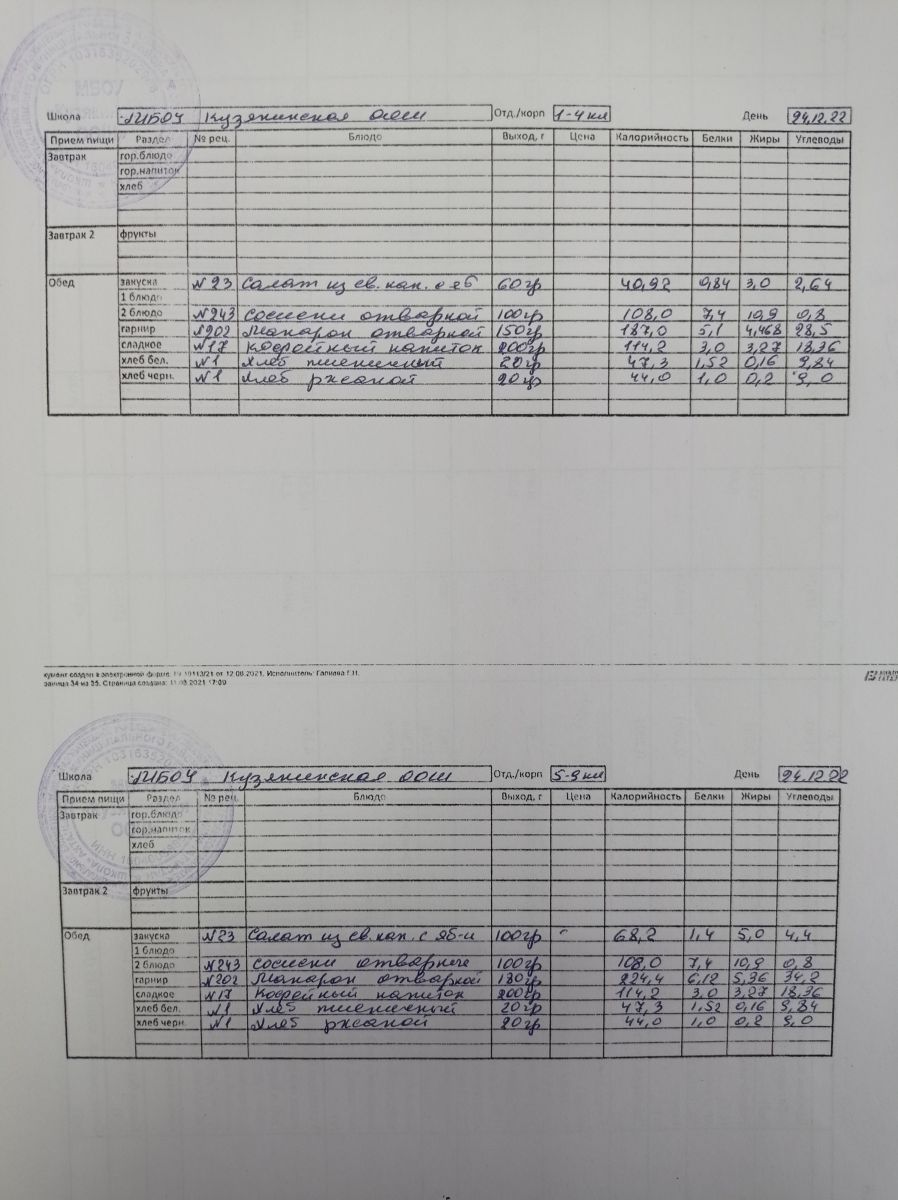 Школа МБОУ Кузякинская оош Отд./корп 1-4 кл День 24.12.22
Прием пищи Раздел № рец. Блюдо Выход, г Цена Калорийность Белки Жиры Углеводы
Завтрак гор.блюдо
гор.напиток
хлеб
Завтрак 2 фрукты
Обед закуска №23 Салат из св. кап. с яб 60гр 40,92 0,84 3,0 2,64
1 блюдо
2 блюдо №243 сосиски отварной 100гр 108,0 7,4 10,9 0,8
гарнир №202 Макарон отварной 150гр 187,0 5,1 4,468 28,5
сладкое №17 кофейный напиток 200гр 114,2 3,0 3,27 18,36
хлеб бел. №1 хлеб пшеничный 20гр 47,3 1,52 0,16 9,84
хлеб черн. №1 хлеб ржаной 20гр 44,0 1,0 0,2 9,0
кумент создан в электронной форме. № 10113/21 от 12.08.2021. Исполнитель: Галиева Г.Н.
раница 34 из 35. Страница создана: 11.08.2021 17:09
МБОУ
Школа МБОУ Кузякинская оош Отд./корп 5-9 кл День 24.12.22
Прием пищи Раздел № рец. Блюдо Выход, г Цена Калорийность Белки Жиры Углеводы
Завтрак гор.блюдо
гор.напиток
хлеб
Завтрак 2 фрукты
Обед закуска №23 Салат из св. кап. с яб-и 100гр 68,2 1,4 5,0 4,4
1 блюдо
2 блюдо №243 сосиски отварные 100гр 108,0 7,4 10,9 0,8
гарнир №202 Макарон отварной 180гр 224,4 6,12 5,36 34,2
сладкое №17 Кофейный напиток 200гр 114,2 3,0 3,27 18,36
хлеб бел. №1 Хлеб пшеничный 20гр 47,3 1,52 0,16 9,84
хлеб черн. №1 Хлеб ржаной 20гр 44,0 1,0 0,2 9,0